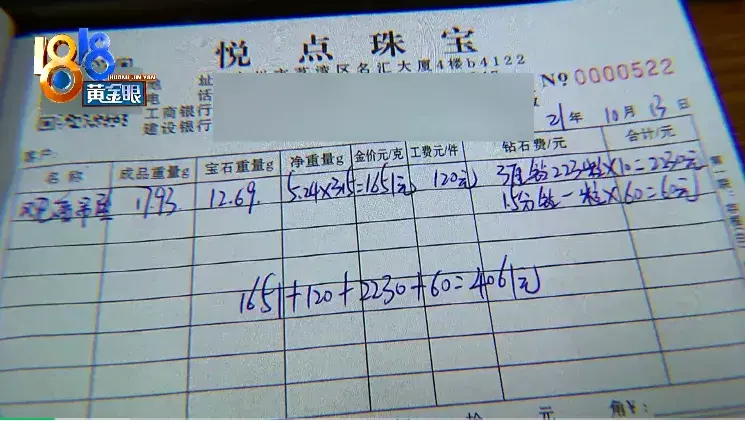 1818
HUANG JIN YAN
黄金眼
悦点珠宝
地 址 湾区名汇大厦4楼b4122
电 话
工商银行
建设银行
No 0000522
21年 10月 13日
客户:
名称 成品重量g 宝石重量g 净重量g 金价元/克 工费元/件 钻石费/元 合计/元
17.93 12.69. 5.24×315=1651元 120元 钻223粒×10=2230元
1.5分钻一粒×60=60元
1651+120+2230+60=4061元
第一联:
拾 元 角¥: